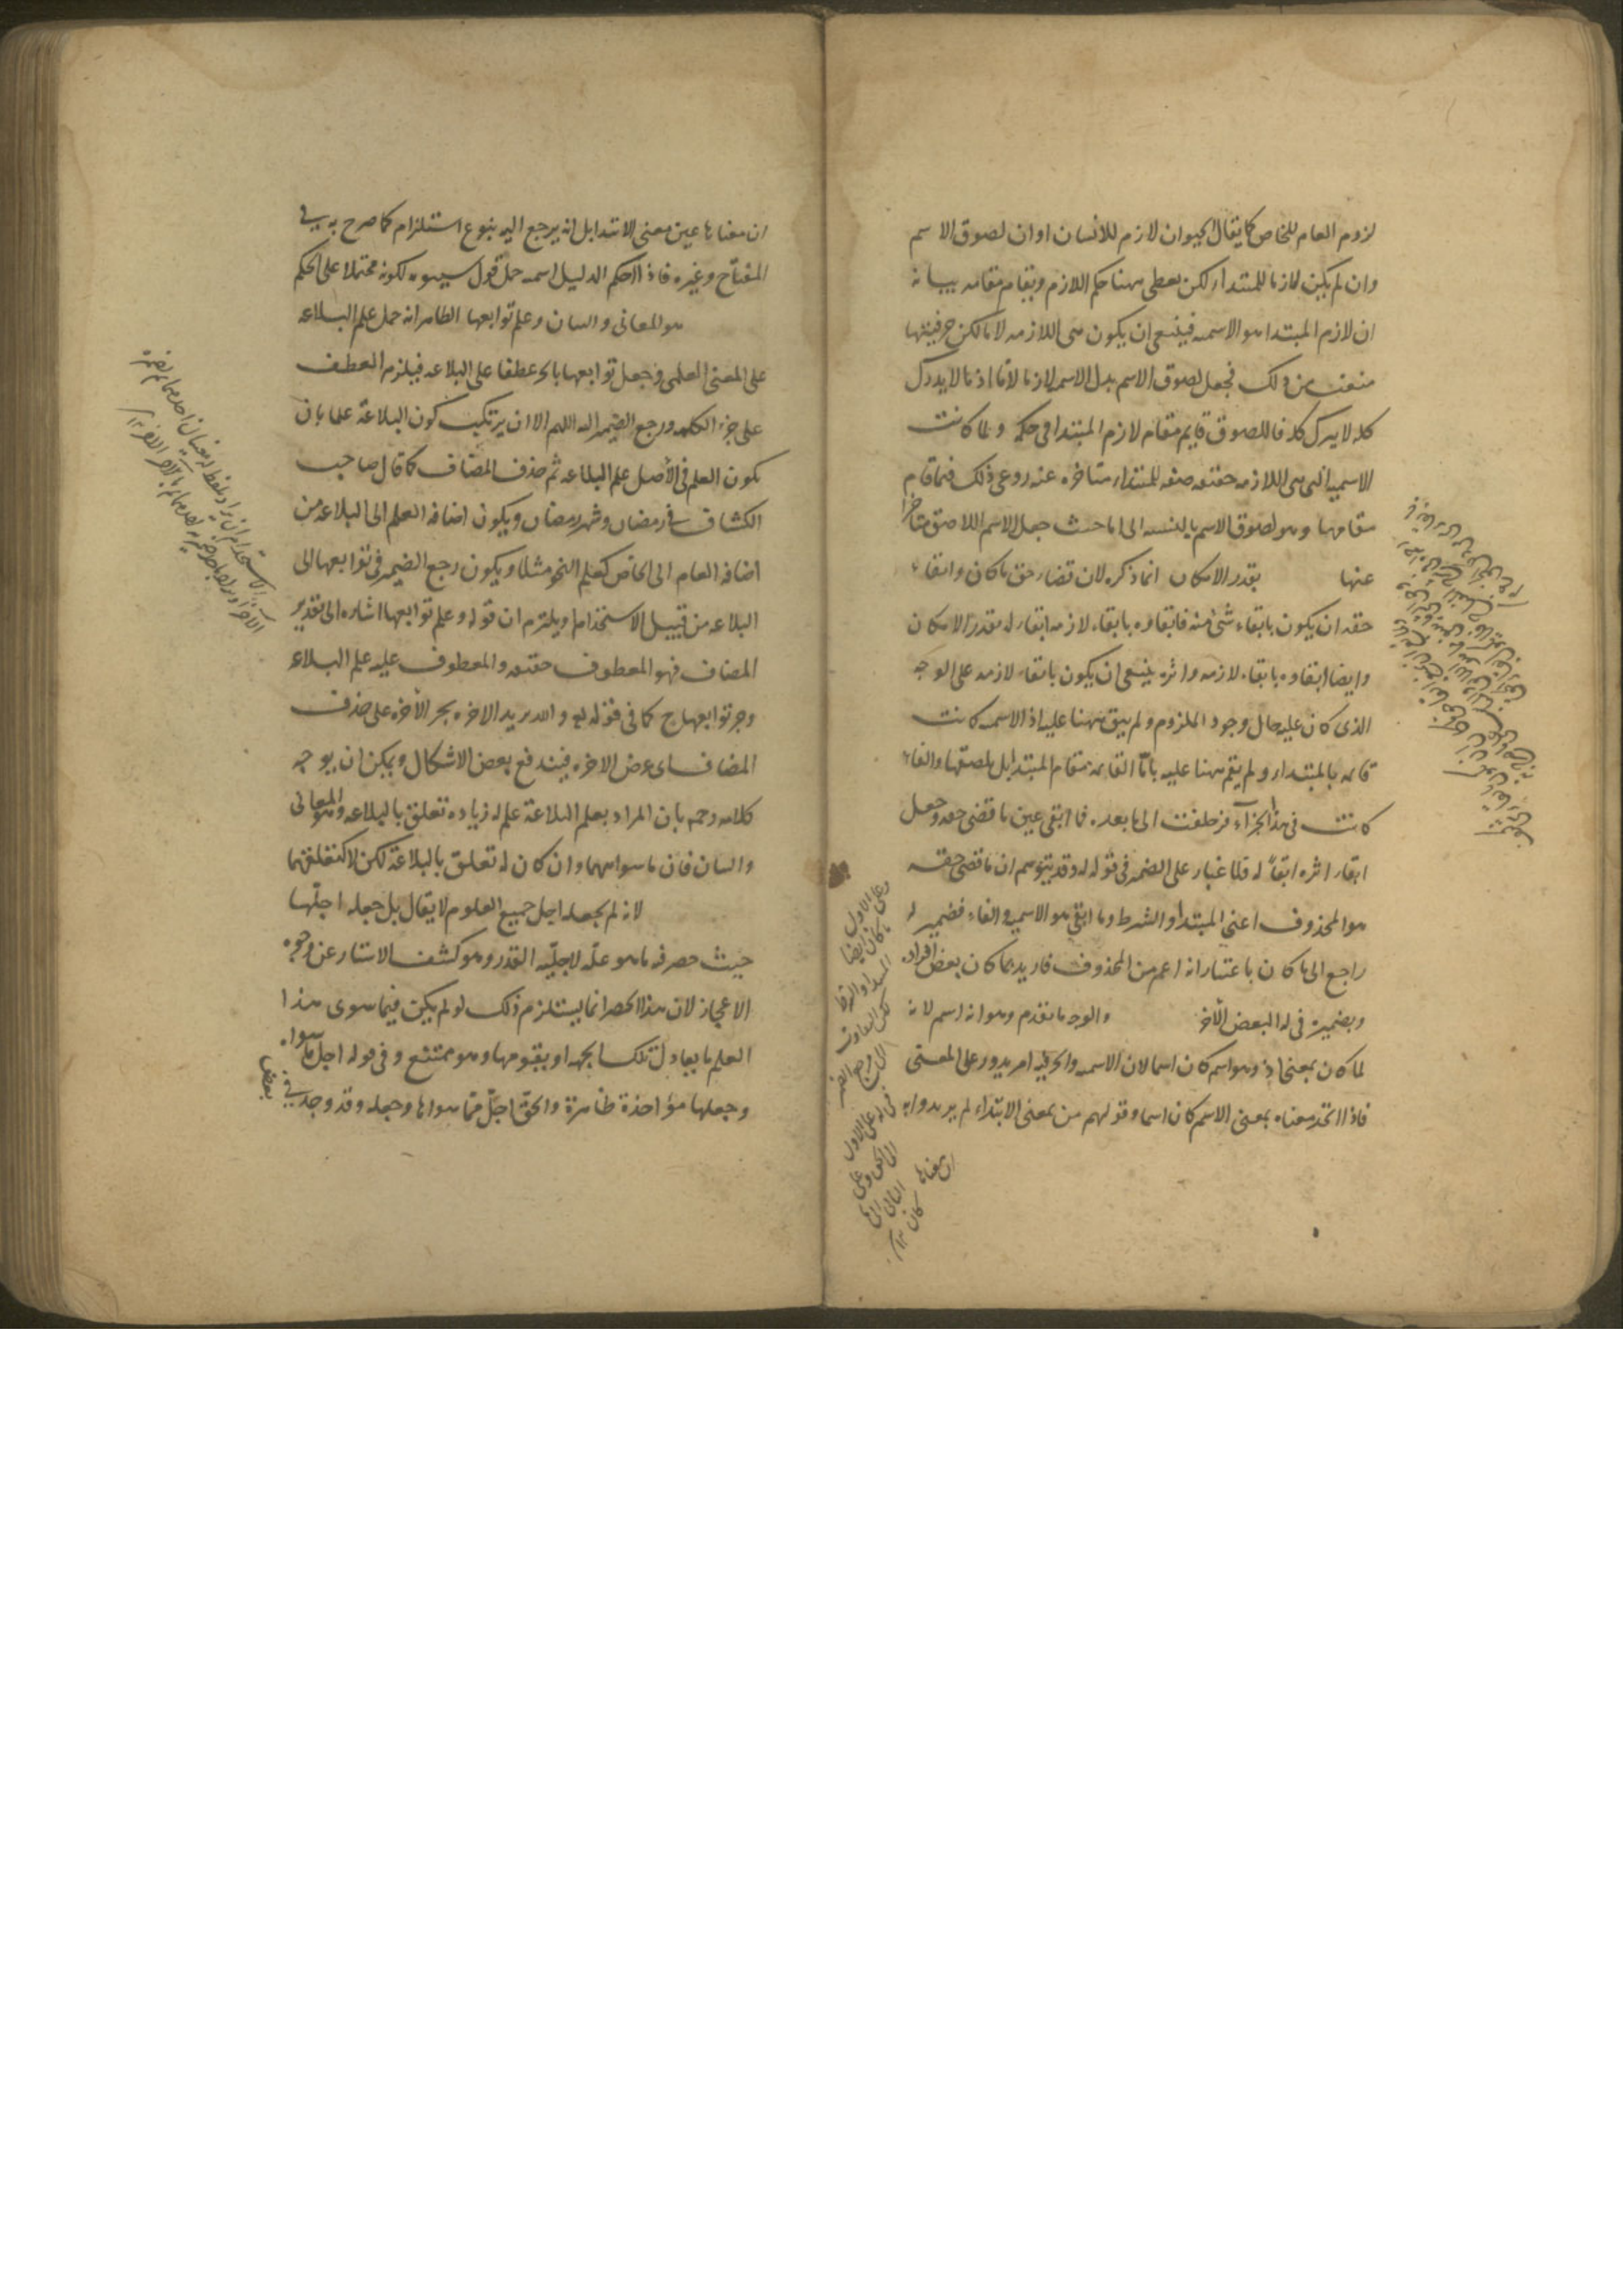 لزوم العام للخاص كما يقال الحيوان لازم للانسان او ان لصوق الاسم
وان لم يكن لازما للمبتداء لكن يعطى ههنا حكم اللازم ويقام مقامه بيانه
ان لازم المبتدا هو الاسميه فينبغى ان يكون هى اللازمه لاما لكن حرفيتها
منعت من ذلك فجعل لصوق الاسم بدل الاسميه لازما لاما اذ ما لا يدرك
كله لا يترك كله فاللصوق قايم مقام لازم المبتدا فى حكمه ولما كانت
الاسميه التى هى اللازمه حقيقه صفه للمبتداء متاخره عنه روعى ذلك فيما قام
مقامها وهو لصوق الاسم بالنسبه الى اما حيث جعل الاسم اللاصق متاخرا
عنها بقدر الامكان انما ذكره لان قضاء حق ما كان وابقاء
حقه ان يكون بابقاء شئ منه فابقاوه بابقاء لازمه ابقاء له بقدر الامكان
وايضا ابقاوه بابقاء لازمه واثره ينبغى ان يكون بابقاء لازمه على الوجه
الذى كان عليه حال وجود الملزوم ولم يبق ههنا عليه اذ الاسميه كانت
قايمه بالمبتداء ولم يقم ههنا عليه باما القايمه مقام المبتدا بل بلصقها والفاء
كانت فى هذا الجزاء فزحلفت الى ما بعده فما ابقى عين ما قضى حقه وجعل
ابقاء اثره ابقاء له فلا غبار على الضمير فى قوله له وقد يتوهم ان ما قضى حقه
هو المحذوف اعنى المبتدأ والشرط وما ابقى هو الاسميه والفاء فضمير له
راجع الى ما كان باعتبار انه اعم من المحذوف فاريد بما كان بعض افراده
وبضميره فى له البعض الآخر والوجه ما تقدم وهو انه اسم لانه
لما كان بمعنى اذ وهو اسم كان اسما لان الاسميه والحرفيه امر يدور على المعنى
فاذا اتحد معناه بمعنى الاسم كان اسما وقولهم من بمعنى الابتداء لم يريدوا به
ان معناها
ان معناها عين معنى الابتدا بل انه يرجع اليه بنوع استلزام كما صرح به فى
المفتاح وغيره فاذا احكم الدليل اسميه حمل قول سيبويه لكونه محتملا على الحكم
هو المعانى والبيان وعلم توابعها الظاهر انه حمل علم البلاغه
على المعنى العلمى وجعل توابعها بالجر عطفا على البلاغه فيلزم العطف
على جزء الكلمه ورجع الضمير اليه اللهم الا ان يرتكب كون البلاغة علما بان
يكون العلم فى الأصل علم البلاغه ثم حذف المضاف كما قال صاحب
الكشاف فى رمضان وشهر رمضان ويكون اضافه العلم الى البلاغه من
اضافه العام الى الخاص كعلم النحو مثلا ويكون رجع الضمير فى توابعها الى
البلاغه من قبيل الاستخدام او يلتزم ان قوله وعلم توابعها اشاره الى تقدير
المضاف فهو المعطوف حقيقه والمعطوف عليه علم البلاغه
وجر توابعها ح كما فى قوله تع والله يريد الاخره بجر الأخره على حذف
المضاف اى عرض الاخره فيندفع بعض الاشكال ويمكن ان يوجه
كلامه رحمه بان المراد بعلم البلاغة علم له زياده تعلق بالبلاغه وهو المعانى
والبيان فان ما سواهما وان كان له تعلق بالبلاغة لكن لا كتعلقهما
لانه لم يجعله اجل جميع العلوم لا يقال بل جعله اجلها
حيث حصر فيه ما هو علّه لاجليه القدر وهو كشف الاستار عن وجوه
الاعجاز لان هذا الحصر انما يستلزم ذلك لو لم يكن فيما سوى هذا
العلم ما يعادل تلك الجهه او يفوقها وهو ممتنع وفى قوله اجل ما سواه
وجعلها مؤاخذة ظاهرة والحق اجل مما سواها وجعله وقد وجد فى
بعض